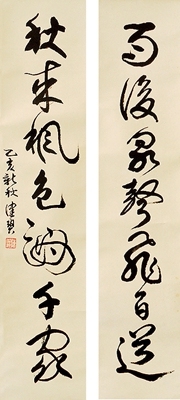 雨後泉聲飛百道
秋来楓色滿千家
乙亥新秋